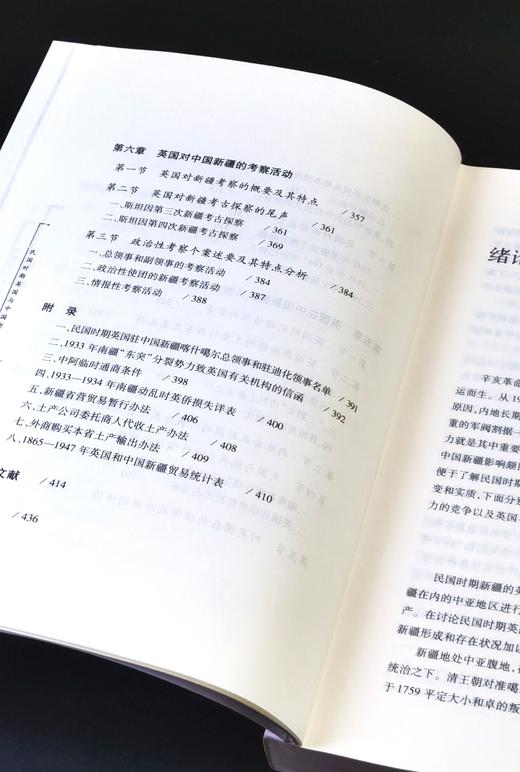 第六章　英国对中国新疆的考察活动
第一节　英国对新疆考察的概要及其特点 / 357
第二节　英国对新疆考古探察的尾声 / 361
一、斯坦因第三次新疆考古探察 / 361
二、斯坦因第四次新疆考古探察 / 369
第三节　政治性考察个案述要及其特点分析 / 384
一、总领事和副领事的考察活动 / 384
二、政治性使团的新疆考察活动 / 387
三、情报性考察活动 / 388
附　录
一、民国时期英国驻中国新疆喀什噶尔总领事和驻迪化领事名单 / 391
二、1933年南疆“东突”分裂势力致英国有关机构的信函 / 392
三、中阿临时通商条件 / 398
四、1933—1934年南疆动乱时英侨损失详表 / 400
五、新疆省营贸易暂行办法 / 406
六、土产公司委托商人代收土产办法 / 408
七、外商购买本省土产输出办法 / 409
八、1865—1947年英国和中国新疆贸易统计表 / 410
文献 / 414
/ 436
民国时期英国与中国
绪论
辛亥革命
运而生。从19
原因，内地长期
重的军阀割据一
力就是其中重要
中国新疆影响颇
便于了解民国时期
变和实质，下面分别
力的竞争以及英国
民国时期新疆的英
疆在内的中亚地区进行
产。在讨论民国时期英
新疆形成和存在状况加以
新疆地处中亚腹地，
统治之下。清王朝对准噶
于1759平定大小和卓的叛